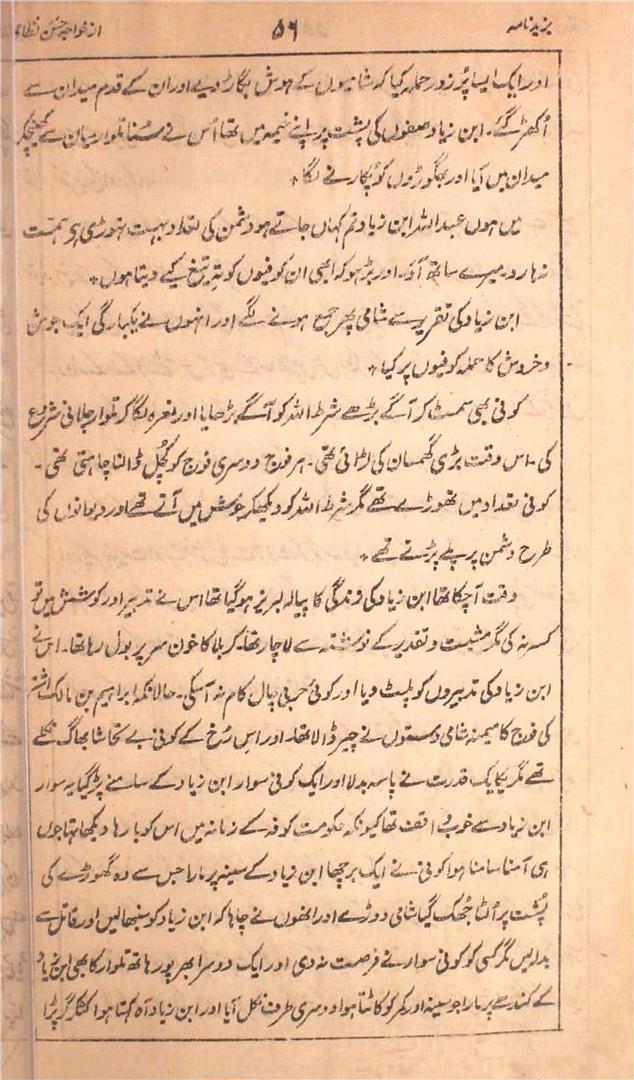 یزید نامہ ۵۶ از خواجہ حسن نظامی
اور ایک ایسا پُر زور حملہ کیا کہ شامیوں کے ہوش بگاڑ دیے اور ان کے قدم میدان سے
اُکھڑ گئے۔ ابن زیاد صفوں کی پشت پر اپنے خیمہ میں تھا اُس نے سُنا تلوار میان سے کھینچکر
میدان میں آیا اور بھگوڑوں کو پُکارنے لگا *
میں ہوں عبد اللہ ابن زیاد تم کہاں جاتے ہو دشمن کی تعداد بہت تھوڑی ہی ہمت
نہ ہارو۔ میرے ساتھ آؤ۔ اور بڑہو کہ ابھی ان کوفیوں کو تہ تیغ کیے دیتا ہوں *
ابن زیاد کی تقریر سے شامی پھر جمع ہونے لگے اور انہوں نے یکبارگی ایک جوش
و خروش کا حملہ کوفیوں پر کیا *
کوفی بھی سمٹ کر آگے بڑھے شرط اللہ کو آگے بڑھایا اور نعرہ لگا کر تلوار چلانی شروع
کی۔ اس وقت بڑی گھمسان کی لڑائی تھی۔ ہر فوج دوسری فوج کو کُچل ڈالنا چاہتی تھی۔
کوفی تعداد میں تھوڑے تھے مگر شرط اللہ کو دیکھکر جوش میں آتے تھے اور دیوانوں کی
طرح دشمن پر پلے پڑتے تھے *
وقت آچکا تھا ابن زیاد کی زندگی کا پیالہ لبریز ہو گیا تھا اس نے تدبیر اور کوشش میں تو
کسر نہ کی مگر مشیت و تقدیر کے نوشتہ سے لاچار تھا۔ کربلا کا خون سر پر بول رہا تھا۔ اس نے
ابن زیاد کی تدبیروں کو پلٹ دیا اور کوئی حربی چال کام نہ آسکی۔ حالانکہ ابراہیم بن مالک اشتر
کی فوج کا میمنہ شامی دستوں نے چیر ڈالا تھا۔ اور اس رُخ کے کوفی بے تحاشا بھاگ نکلے
تھے مگر یکایک قدرت نے پاسہ بدلا اور ایک کوفی سوار ابن زیاد کے سامنے پڑ گیا یہ سوار
ابن زیاد سے خوب واقف تھا کیونکہ حکومت کوفہ کے زمانہ میں اس کو بارہا دیکھا تھا جوں
ہی آمنا سامنا ہوا کوفی نے ایک برچھا ابن زیاد کے سینہ پر مارا جس سے وہ گھوڑے کی
پُشت پر اُلٹا جُھک گیا شامی دوڑے اور انھوں نے چاہا کہ ابن زیاد کو سنبھالیں اور قاتل سے
بدلہ لیں مگر کسی کو کوفی سوار نے فرصت نہ دی اور ایک دوسرا بھرپور ہاتھ تلوار کا بھی ابن زیاد
کے کندھے پر مارا جو سینہ اور کمر کو کاٹتا ہوا دوسری طرف نکل آیا اور ابن زیاد آہ کہتا ہوا کٹکر گر پڑا